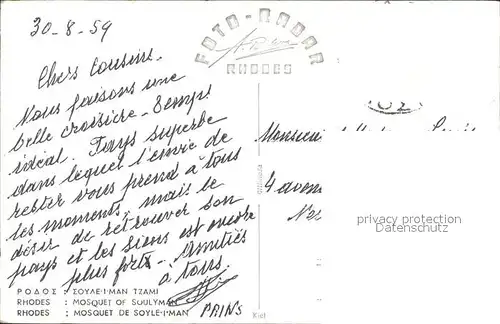 30-8-59
FOTO-RADAR
RHODES
Chers Cousins.
Nous faisons une
belle croisière - Temps
idéal. Pays superbe
dans lequel l'envie de
rester vous prend à tous
les moments, mais le
désir de retrouver son
pays et les siens est encore
plus fort - Amitiés
à tous.
PRINS
Monsieur
4 avenu
privacy protection
Datenschutz
ΡΟΔΟΣ : ΣΟΥΛΕ·Ι·ΜΑΝ ΤΖΑΜΙ
RHODES : MOSQUET OF SULYMAN
RHODES : MOSQUET DE SOYLE·I·MAN